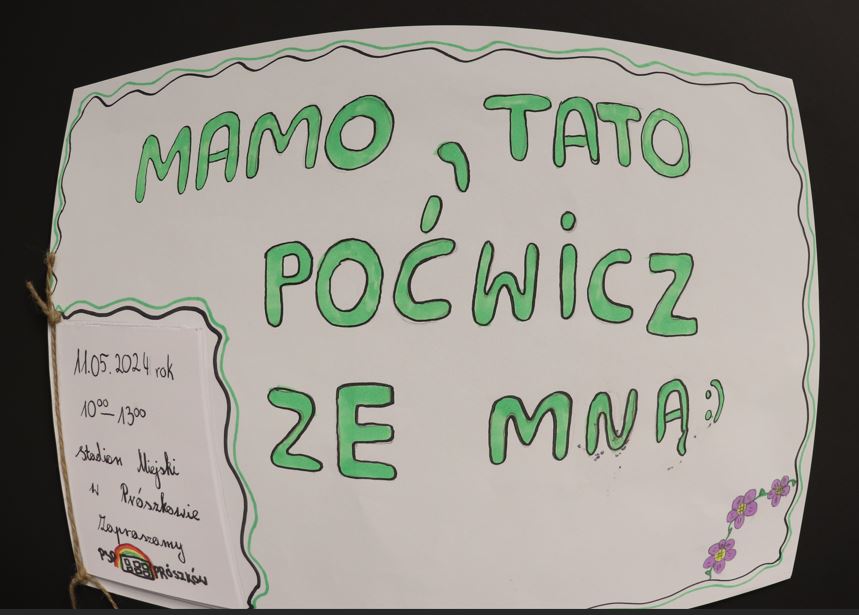 MAMO, TATO
POĆWICZ
ZE MNĄ :)
11.05.2024 rok
10⁰⁰–13⁰⁰
Stadion Miejski
w Prószkowie
Zapraszamy
PSP PRÓSZKÓW